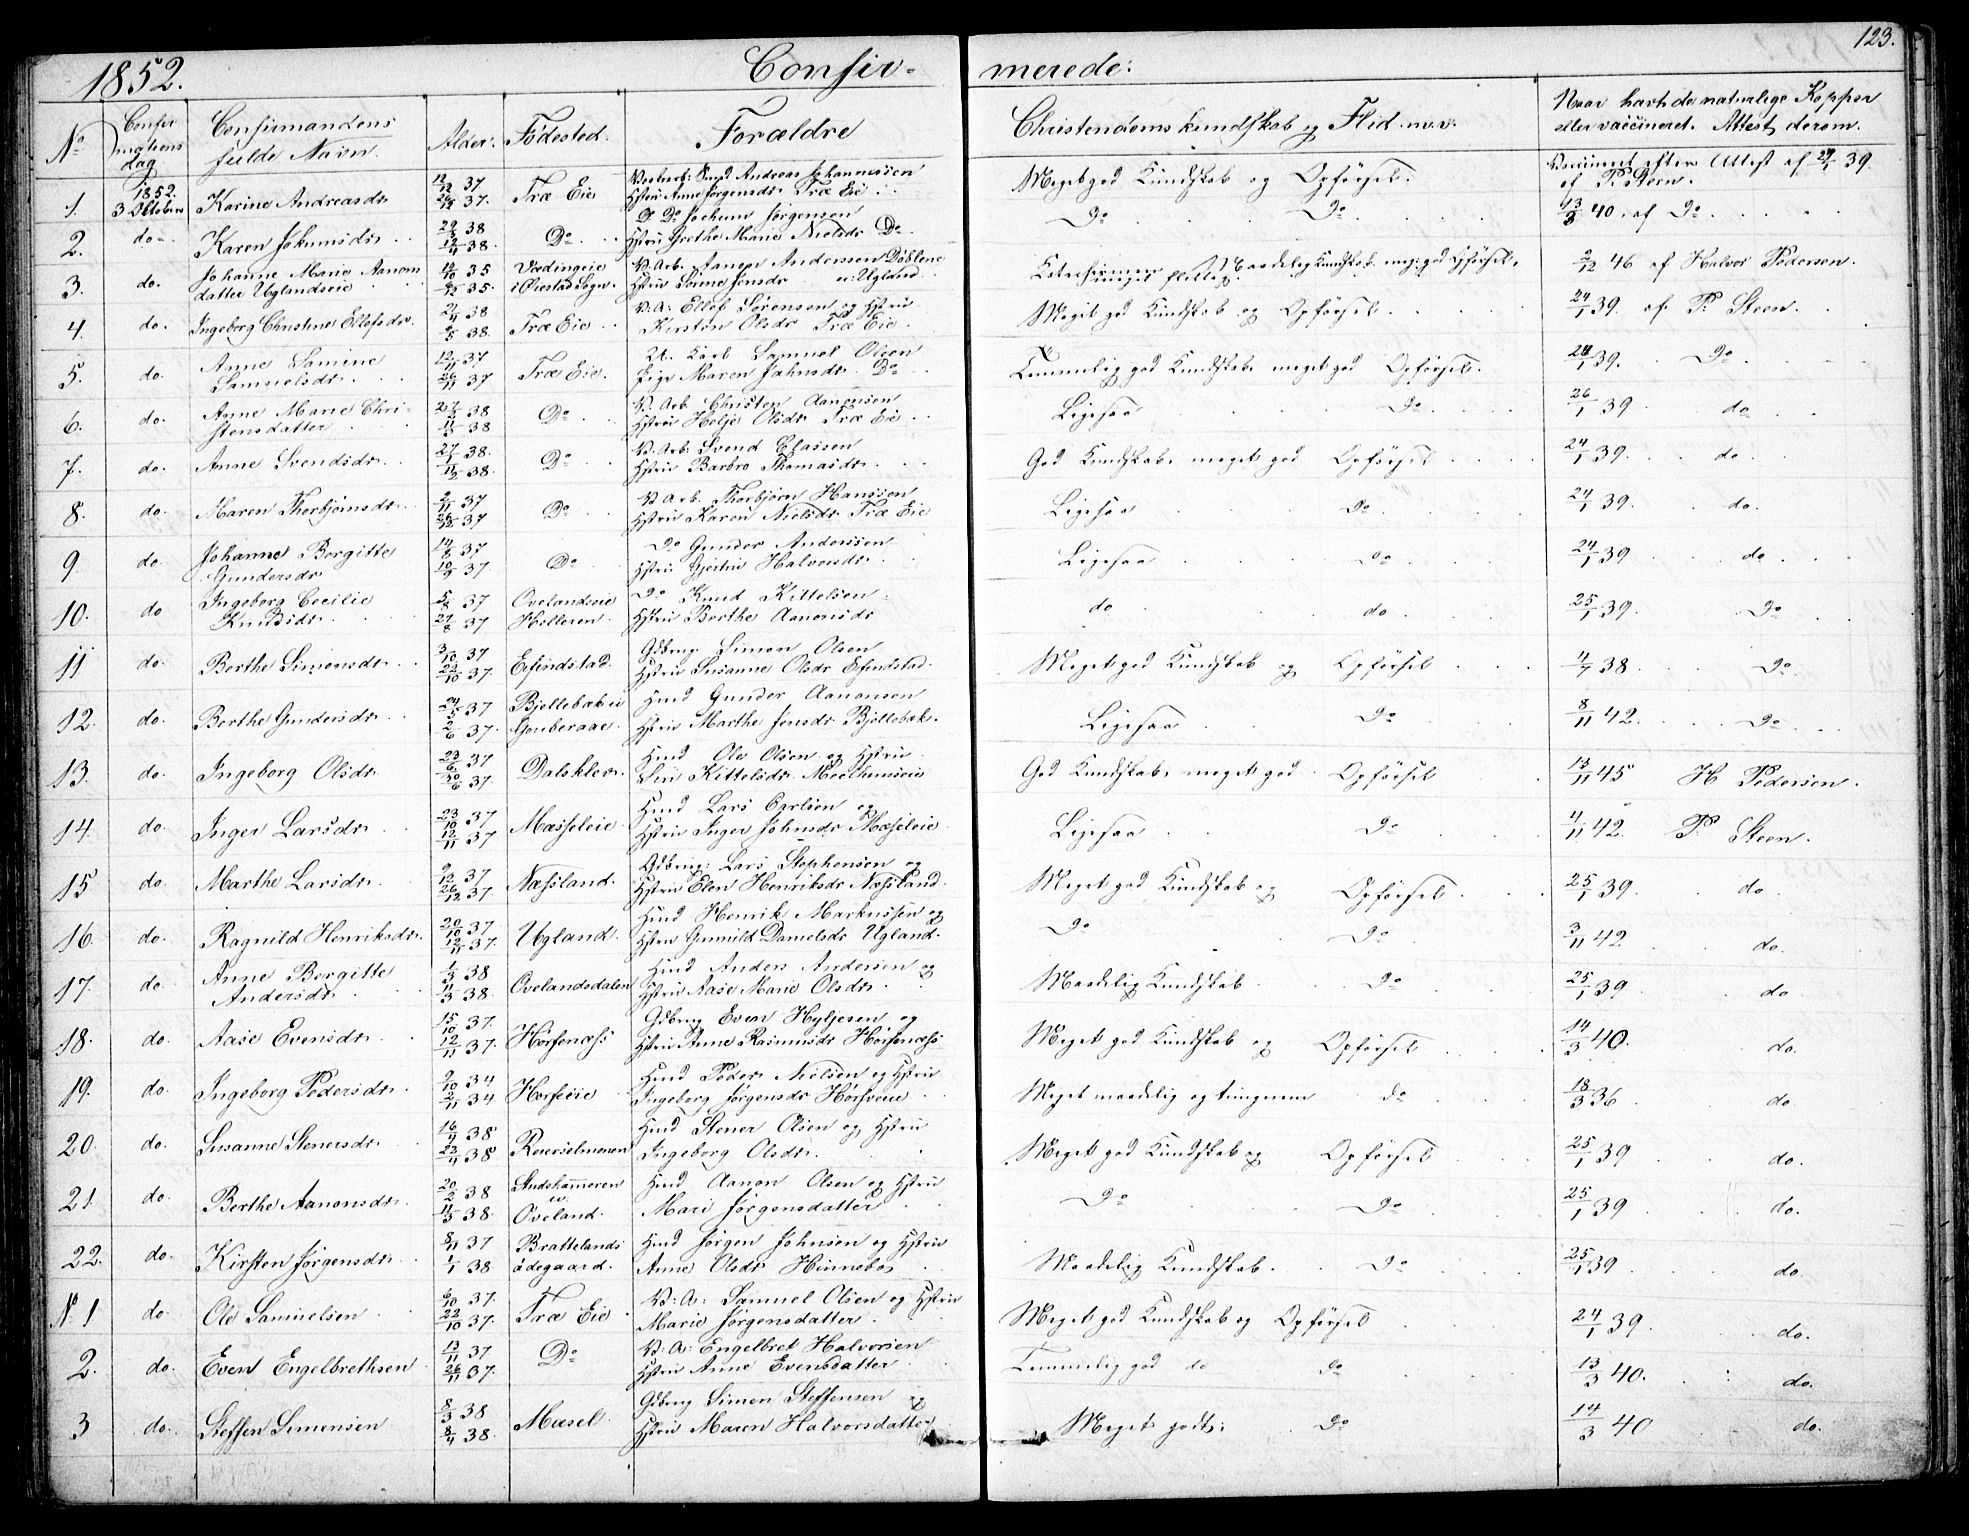 123.
1852. Confir- merede:
No Confirmations dag Confirmandens fulde Navn. Alder. Födested. Forældre Christendoms kundskab og Flid m.v. Naar havt de naturlige Kopper eller vaccineret. Attest derom.
1. 1852. 3 Oktober Karine Andreasdr 37 37. Træ Eie Andreas Johannessen Hstru Anne Jørgensdr Træ Eie Meget god Kundskab og Opförsel. Vaccineret efter Attest af 39. af P. Steen.
2. do. Karen Jokumsdr 38 38. Do Do Do Jochum Jørgensen Hstru Grethe Marie Nielsdr Do Do Do 13/3 40. af Do
3. do. Johanne Marie Aanon datter Uglandseie 35 35. i Øiestad Sogn. V. Arb. Aanon Andersen Hstru Jensdr Ugland 2/12 46 af Halvor Pedersen.
4. do. Ingeborg Christine Ellefsdr 38 38. Træ Eie V: A: Ellef Sørensen og Hstru Kirsten Olsdr Træ Eie Meget god Kundskab og Opförsel 24/1 39. af P. Steen.
5. do. Anne Samine Samuelsdr 12/11 37 26/11 37 Træ Eie. U. Karl Samuel Olsen Pige Maren Jahnsdr. Do Temmelig god Kundskab. meget god Opförsel. 24/1 39. Do
6. do. Anne Marie Christensdatter 38 38 Do V. Arb. Christen Aanonsen Hstru Helje Olsdr Træ Eie Ligesaa Do 26/1 39 do
7. do. Anne Svendsdr 27/1 38. 11/2 38. Do V. Arb: Svend Classen Hstru Barbro Thomasdr God Kundskab. meget god Opförsel 24/1 39. do
8. do. Maren Thorbjörnsdr 2/11 37 26/12 37 Do V. Arb. Thorbjörn Hanssen Hstru Karen Nielsdr Træ Eie Ligesaa Do 24/1 39. do.
9. do. Johanne Borgitte Gundersdr 14/8 37 10/9 37. Do Do Gunder Anderssen Hstru Gjertru Halvorsdr Ligesaa Do 24/1 39 do
10. do Ingeborg Cecilie Knudsdr 5/8 37 27/8 37 Ovelandseie Holleren Do Knud Kittelsen Hstru Berthe Aanonsdr do do 25/1 39. Do
11 do. Berthe Simonsdr 3/10 37 22/10 37. Efindstad. Gdbrug Simon Olsen Hstru Susanne Olsdr Efindstad. Meget god Kundskab og Opförsel 4/7 38 Do
12. do. Berthe Gundersdr 37 2/6 37. Bjellebækeie Gouberaae Hmd Gunder Aanonsen Hstru Marthe Jensdr Bjellebæk. Ligesaa Do 8/11 42. Do
13. do. Ingeborg Olsdr 23/6 37 30/6 37. Dalsklev Hmd Ole Olsen og Hstru Siri Kittelsdr God Kundskab. meget god Opförsel 13/11 45 H Pedersen.
14. do. Inger Larsdr 23/10 37 12/11 37 Mæsseleie Hmd Lars Carlsen og Hstru Inger Johnsdr Mæseleie Ligesaa Do 4/11 42. P. Steen.
15 do. Marthe Larsdr 37 26/12 37 Næssland. Gdbrug: Lars Stephensen og Hstru Elen Henriksdr Næssland. Meget god Kundskab og Opförsel 25/1 39. do
16. do. Ragnild Henriksdr 20/10 37 12/11 37. Ugland. Hmd Henrik Markussen og Hstru Gunnild Danielsdr Ugland. Do Do 3/11 42 do.
17. do. Anne Borgitte Andersdr 1/3 38 11/3 38. Ovelandsdalen Hmd Anders Andersen og Hstru Aase Marie Olsdr Maadelig Kundskab Do 25/1 39 do
18. do. Aase Evensdr 15/10 37. 12/11 37. Hörsenæss Gdbrug Even Hyljesen og Hstru Anne Rasmusdr Hörsenæss Meget god Kundskab og Opförsel 14/3 40. do.
19. do. Ingeborg Pedersdr 2/10 34 2/11 34 Horseeie Hmd Peder Nielsen og Hstru Ingeborg Jørgensdr Meget maadelig og tungnem do 18/3 36 do
20. do. Susanne Stenersdr 16/4 38 22/4 38 Reierselmoen Hmd Stener Olsen og Hstru Ingeborg Olsdr Meget god Kundskab og Opförsel 25/1 39 do.
21. do. Berthe Aanonsdr 20/2 38 11/3 38. Oveland. Hmd Aanon Olsen og Hstru Mari Jørgensdatter Do Do 25/1 39 do.
22. do. Kirsten Jørgensdr 8/11 37 1/1 38 Brattelands ödegaard. Hmd Jørgen Johnsen og Hstru Anne Olsdr Hinnebo Maadelig Kundskab. Do 25/1 39 do.
No 1 do Ole Samuelsen 6/10 37. 22/10 37. Træ Eie V: A: Samuel Olsen og Hstru Marie Jørgensdatter Meget god Kundskab og Opförsel 24/1 39. do.
2. do. Even Engelbrethsen 13/11 37 26/11 37. Do V: A: Engelbret Halvorsen Hstru Anne Evensdatter Temmelig god do do 13/3 40. do.
3 do. Steffen Simensen 8/3 38 8/4 38. Mæsel. Gdbrug Simen Steffensen og Hstru Maren Halvorsdatter Meget godt: Do 14/3 40 do.